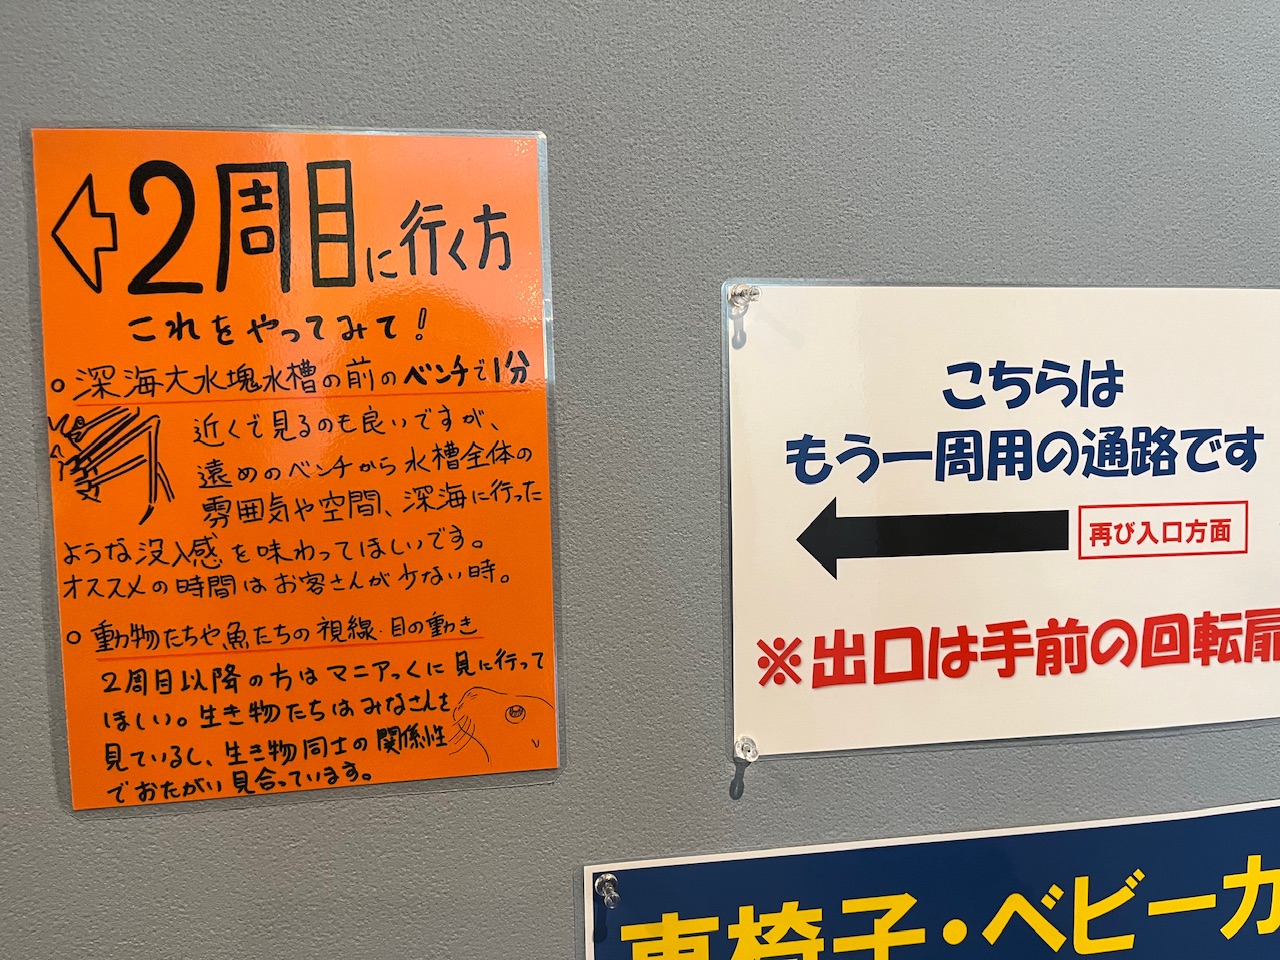 2周目に行く方
これをやってみて!
○深海大水塊水槽の前のベンチで1分
近くで見るのも良いですが、
遠めのベンチから水槽全体の
雰囲気や空間、深海に行った
ような没入感を味わってほしいです。
オススメの時間はお客さんが少ない時。
○動物たちや魚たちの視線・目の動き
2周目以降の方はマニアっくに見に行って
ほしい。生き物たちはみなさんを
見ているし、生き物同士の関係性
でおたがい見合っています。
こちらは
もう一周用の通路です
再び入口方面
※出口は手前の回転扉
車椅子・ベビーカ